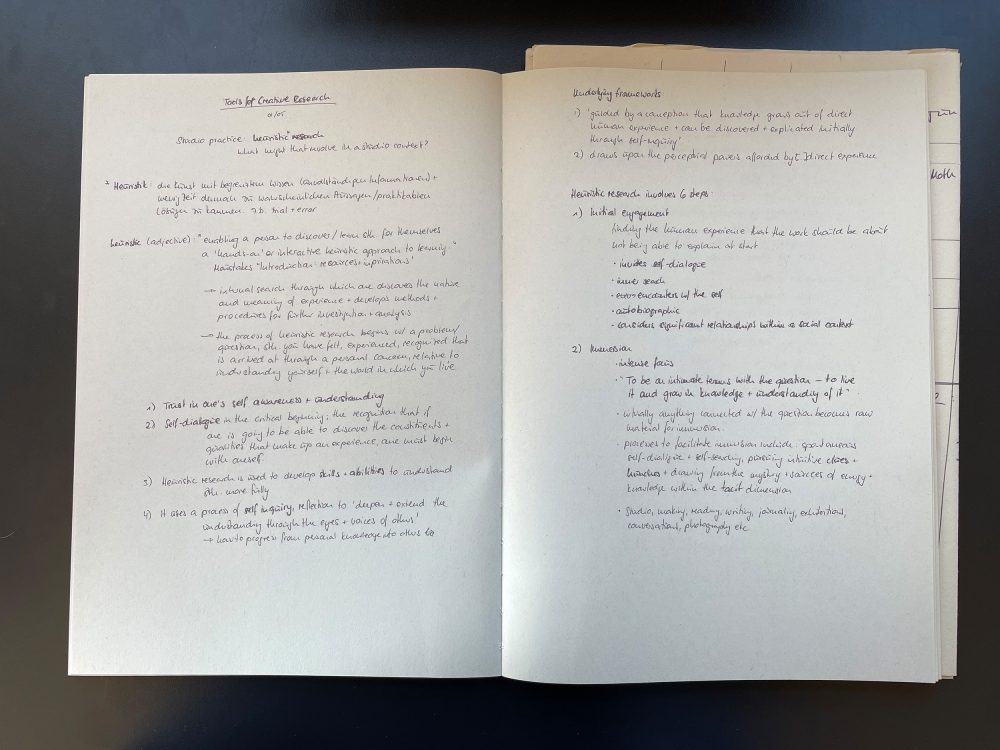 Tools for Creative Research
01/05
Studio practice: heuristic* research
What might that involve in a studio context?
* Heuristik: die Kunst mit begrenztem Wissen (unvollständigen Informationen) +
wenig Zeit dennoch zu wahrscheinlichen Aussagen/praktikablen
Lösungen zu kommen. z.b. trial + error
heuristic (adjective): "enabling a person to discover/learn sth. for themselves
a 'hands-on' or interactive heuristic approach to learning."
Moustakas "Introduction: resources + inspirations"
→ internal search through which one discovers the nature
and meaning of experience + develops methods +
procedures for further investigation + analysis
→ the process of heuristic research begins w/ a problem/
question, sth. you have felt, experienced, recognised that
is arrived at through a personal concern, relative to
understanding yourself + the world in which you live
1) Trust in one's self awareness + understanding
2) Self-dialogue in the critical beginning; the recognition that if
one is going to be able to discover the constituents +
qualities that make up an experience, one must begin
with oneself.
3) Heuristic research is used to develop skills + abilities to understand
sth. more fully
4) It uses a process of self inquiry, reflection to 'deepen + extend the
understanding through the eyes + voices of others'
→ how to progress from personal knowledge into others to
Underlying frameworks
1) 'guided by a conception that knowledge grows out of direct
human experience + can be discovered + explicated initially
through self-inquiry'
2) draws upon the perceptive powers afforded by [ ] direct experience
Heuristic research involves 6 steps:
1) Initial engagement
finding the human experience that the work should be about
not being able to explain at start
• invites self-dialogue
• inner search
• encounters w/ the self
• autobiographic
• considers significant relationships within a social context
2) Immersion
• intense focus
• "To be on intimate terms with the question – to live
it and grow in knowledge + understanding of it"
• virtually anything connected w/ the question becomes raw
material for immersion.
• processes to facilitate immersion include: spontaneous
self-dialogue + self-searching, pursuing intuitive clues +
hunches + drawing from the mystery + sources of energy +
knowledge within the tacit dimension
• Studio, making, reading, writing, journaling, exhibitions,
conversations, photography etc
Moth
2